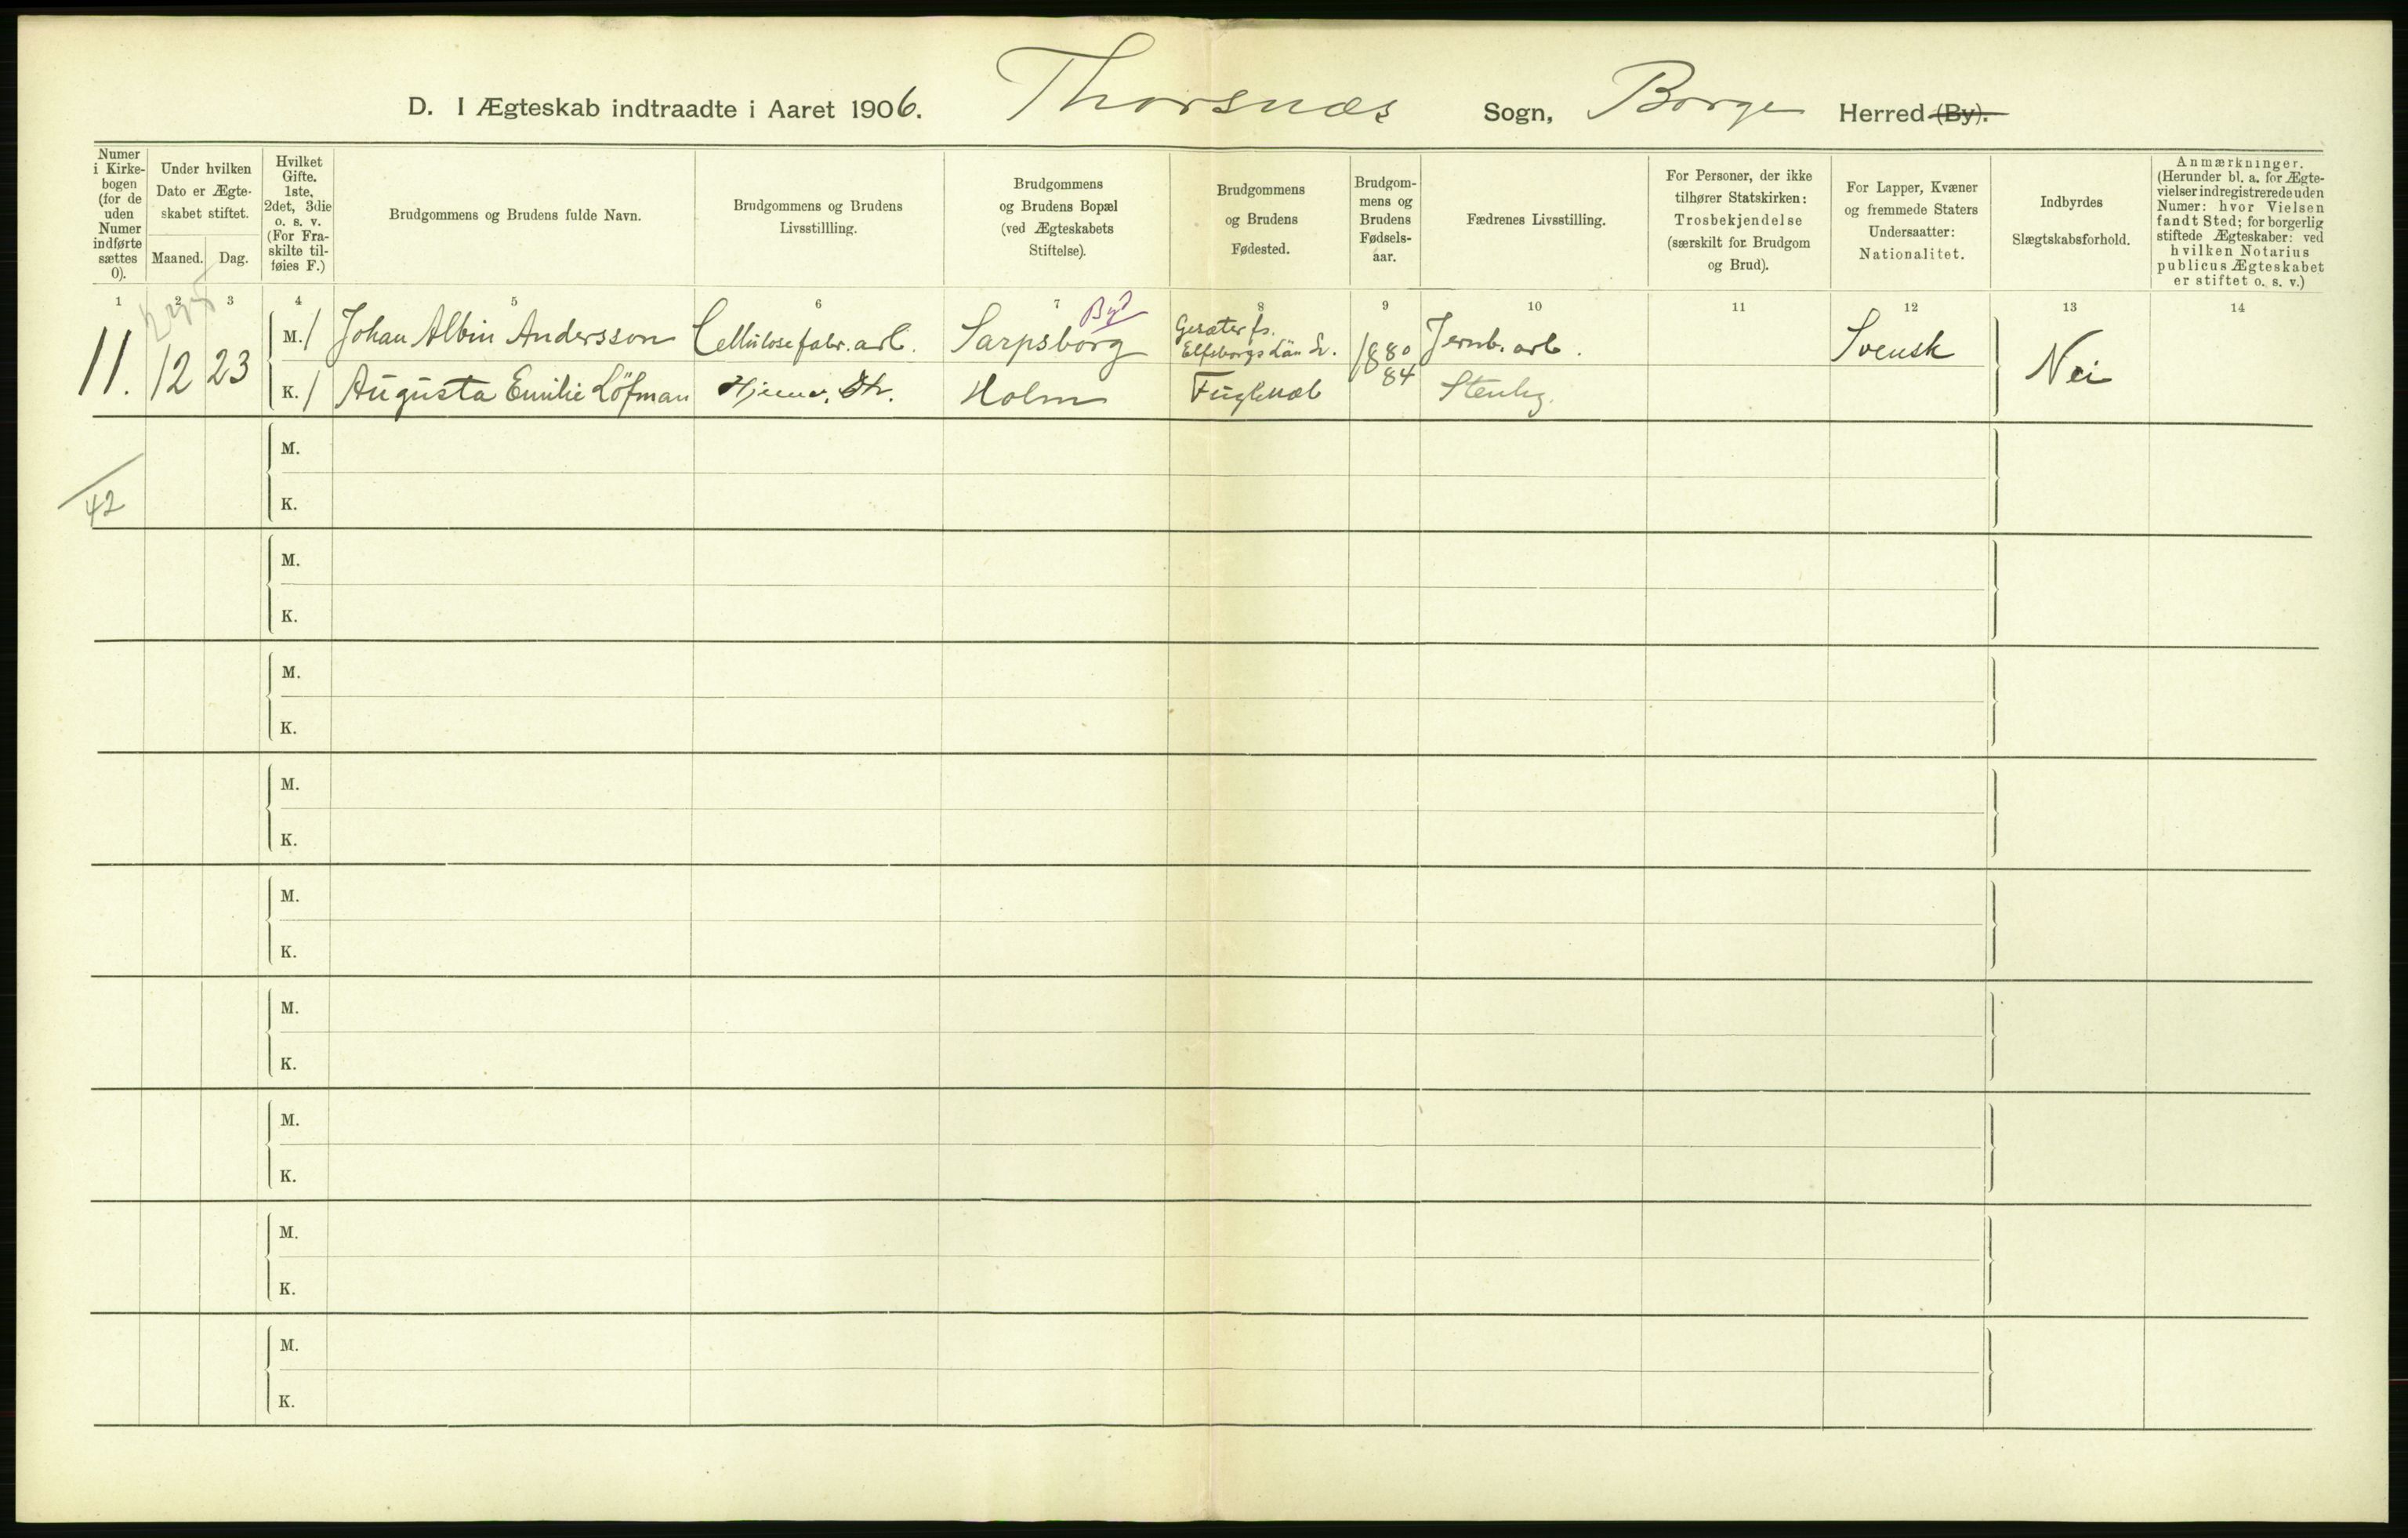 D. I Ægteskab indtraadte i Aaret 1906. Thorsnæs Sogn, Borge Herred (By).
Numer
i Kirke-
bogen
(for de
uden
Numer
indførte
sættes
0).
Under hvilken
Dato er Ægte-
skabet stiftet.
Maaned. Dag.
Hvilket
Gifte.
1ste,
2det, 3die
o. s. v.
(For Fra-
skilte til-
føies F.)
Brudgommens og Brudens fulde Navn.
Brudgommens og Brudens
Livsstillling.
Brudgommens
og Brudens Bopæl
(ved Ægteskabets
Stiftelse).
Brudgommens
og Brudens
Fødested.
Brudgom-
mens og
Brudens
Fødsels-
aar.
Fædrenes Livsstilling.
For Personer, der ikke
tilhører Statskirken:
Trosbekjendelse
(særskilt for Brudgom
og Brud).
For Lapper, Kvæner
og fremmede Staters
Undersaatter:
Nationalitet.
Indbyrdes
Slægtskabsforhold.
Anmærkninger.
(Herunder bl. a. for Ægte-
vielser indregistrerede uden
Numer: hvor Vielsen
fandt Sted; for borgerlig
stiftede Ægteskaber: ved
hvilken Notarius
publicus Ægteskabet
er stiftet o. s. v.)
1 2 3 4 5 6 7 8 9 10 11 12 13 14
11. 12 23
M. 1 Johan Albin Andersson Cellulosefabr. arb. Sarpsborg Elfsborgs Län 1880 Jernb. arb. Svensk
K. 1 Augusta Emilie Löfman Holm 84 Nei
M.
42
K.
M.
K.
M.
K.
M.
K.
M.
K.
M.
K.
M.
K.
M.
K.
M.
K.